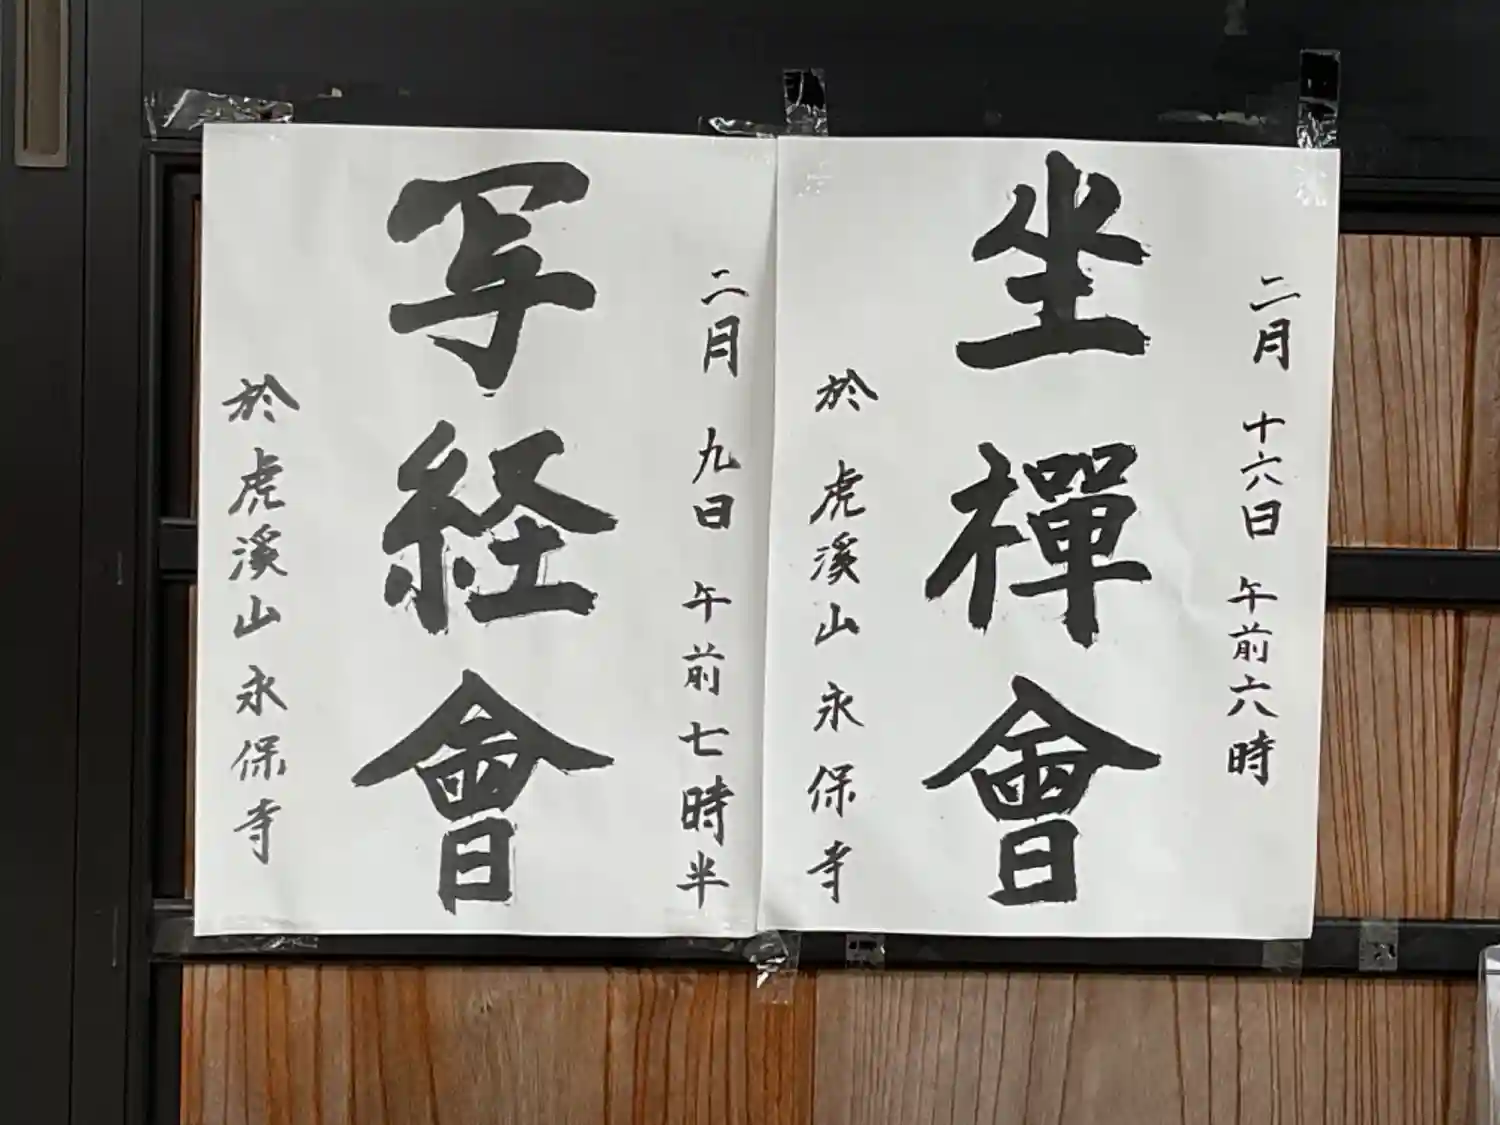 二月 十六日 午前六時
坐禪會
於 虎溪山 永保寺
二月 九日 午前七時半
写経會
於 虎溪山 永保寺